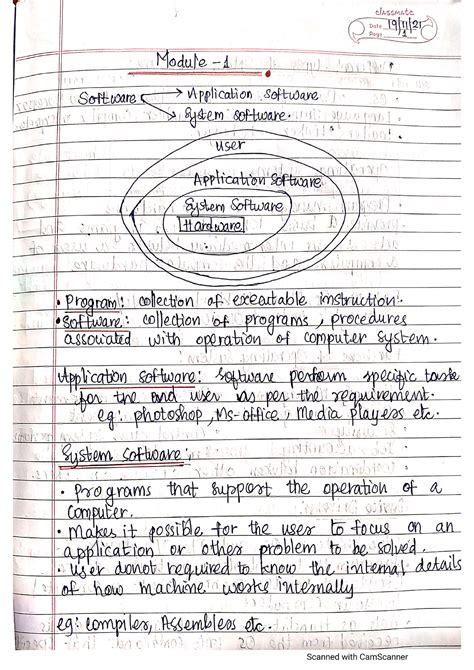 classmate
Date 19/11/21
Page 1
Module - 1
Software → Application Software
→ System software.
User
Application Software
System Software
Hardware
• Program: collection of executable instruction.
• Software: collection of programs, procedures
associated with operation of computer system.
Application software: Software perform specific task
for the end user as per the requirement.
eg: photoshop, Ms-office, Media Players etc.
System Software:
• Programs that support the operation of a
computer.
• Makes it possible for the user to focus on an
application or other problem to be solved.
• User donot required to know the internal details
of how machine works internally
eg: compiler, Assemblers etc.
Scanned with CamScanner